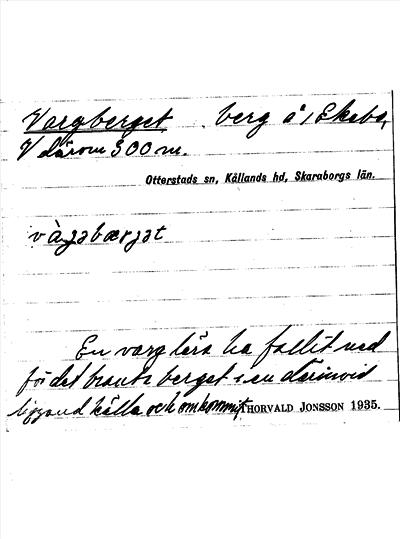 Vargberget berg å 1 Ekebo,
V därom 300 m.
Otterstads sn, Kållands hd, Skaraborgs län.
vàgabærgat
En varg lära ha fallit ned
för det branta berget i en därinvid
liggand källa och omkommit.
THORVALD JONSSON 1935.